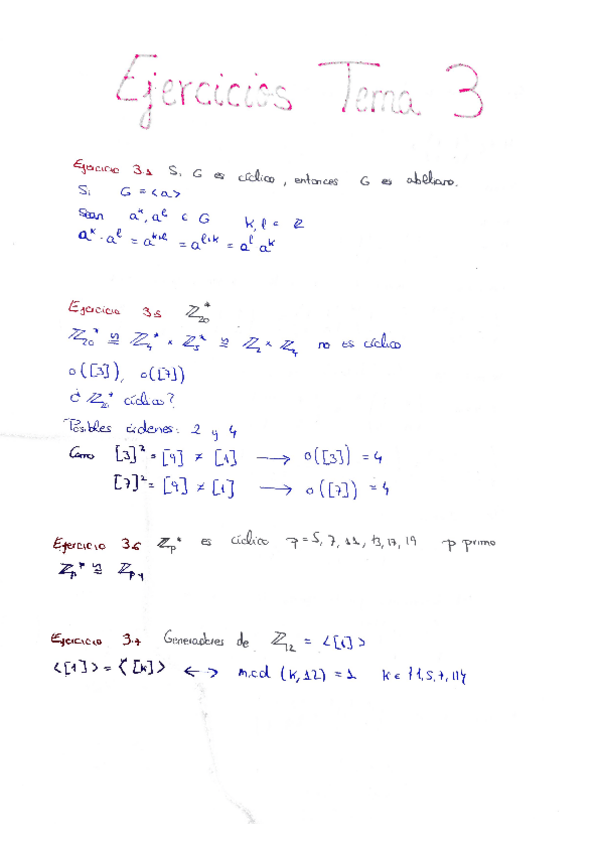 Ejercicios Tema 3
Ejercicio 3.1 Si G es cíclico, entonces G es abeliano.
Si G = <a>
Sean a^k, a^l ∈ G k, l ∈ Z
a^k · a^l = a^{k+l} = a^{l+k} = a^l a^k
Ejercicio 3.5 ℤ₂₀*
ℤ₂₀* ≅ ℤ₄* × ℤ₅* ≅ ℤ₂ × ℤ₄ no es cíclico
o([3]), o([7])
¿ ℤ₂₀* cíclico?
Posibles órdenes: 2 y 4
Como [3]² = [9] ≠ [1] → o([3]) = 4
[7]² = [9] ≠ [1] → o([7]) = 4
Ejercicio 3.6 ℤp* es cíclico p = 5, 7, 11, 13, 17, 19 p primo
ℤp* ≅ ℤp-1
Ejercicio 3.7 Generadores de ℤ₁₂ = <[1]>
<[1]> = <[k]> ↔ m.c.d (k, 12) = 1 k ∈ {1, 5, 7, 11}